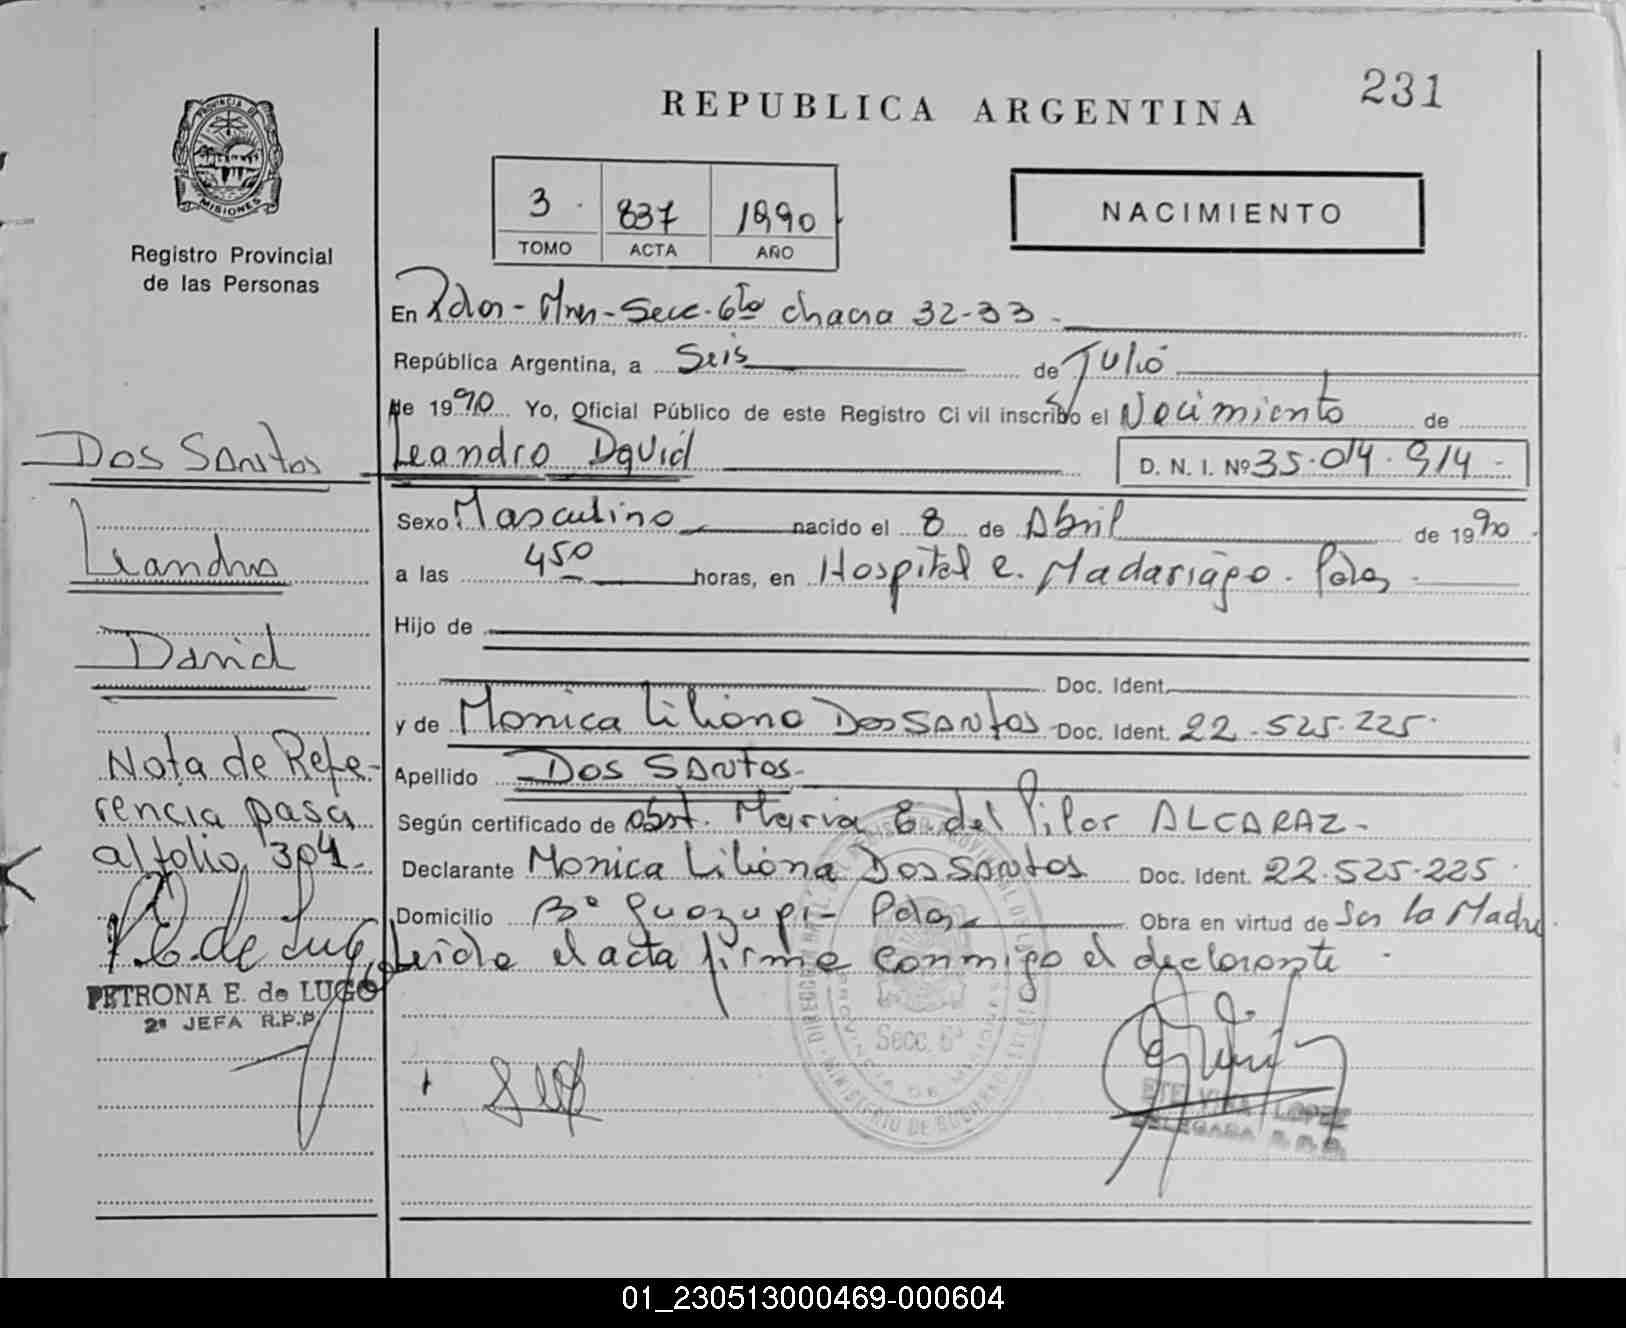 231
REPUBLICA ARGENTINA
PROVINCIA DE
MISIONES
Registro Provincial
de las Personas
3 837 1990
TOMO ACTA AÑO
NACIMIENTO
En Pdas - Mnes - Secc. 6ta chacra 32-33.
República Argentina, a Seis de Julio
de 1990 Yo, Oficial Público de este Registro Civil inscribo el Nacimiento de
Leandro David D. N. I. Nº 35.014.914 -
Sexo Masculino nacido el 8 de Abril de 1990
a las 450 horas, en Hospital R. Madariaga. Pdas.
Hijo de
Doc. Ident.
y de Monica Liliana Dos Santos Doc. Ident. 22.525.225.
Apellido Dos Santos.
Según certificado de obst. Maria E. del Pilar ALCARAZ-
Declarante Monica Liliana Dos Santos Doc. Ident. 22.525.225
Domicilio Bº Guazupi- Pdas. Obra en virtud de Ser la Madre
Leída el acta firma conmigo el declarante.
Dos Santos
Leandro
David
Nota de Refe-
rencia pasa
al folio 304.
P.E. de Lugo
PETRONA E. de LUGO
2ª JEFA R.P.P.
Secc. 6ª
PROVINCIA DE MISIONES
MINISTERIO DE GOBIERNO
ETELVINA LOPEZ
DELEGADA R.P.P.
01_230513000469-000604